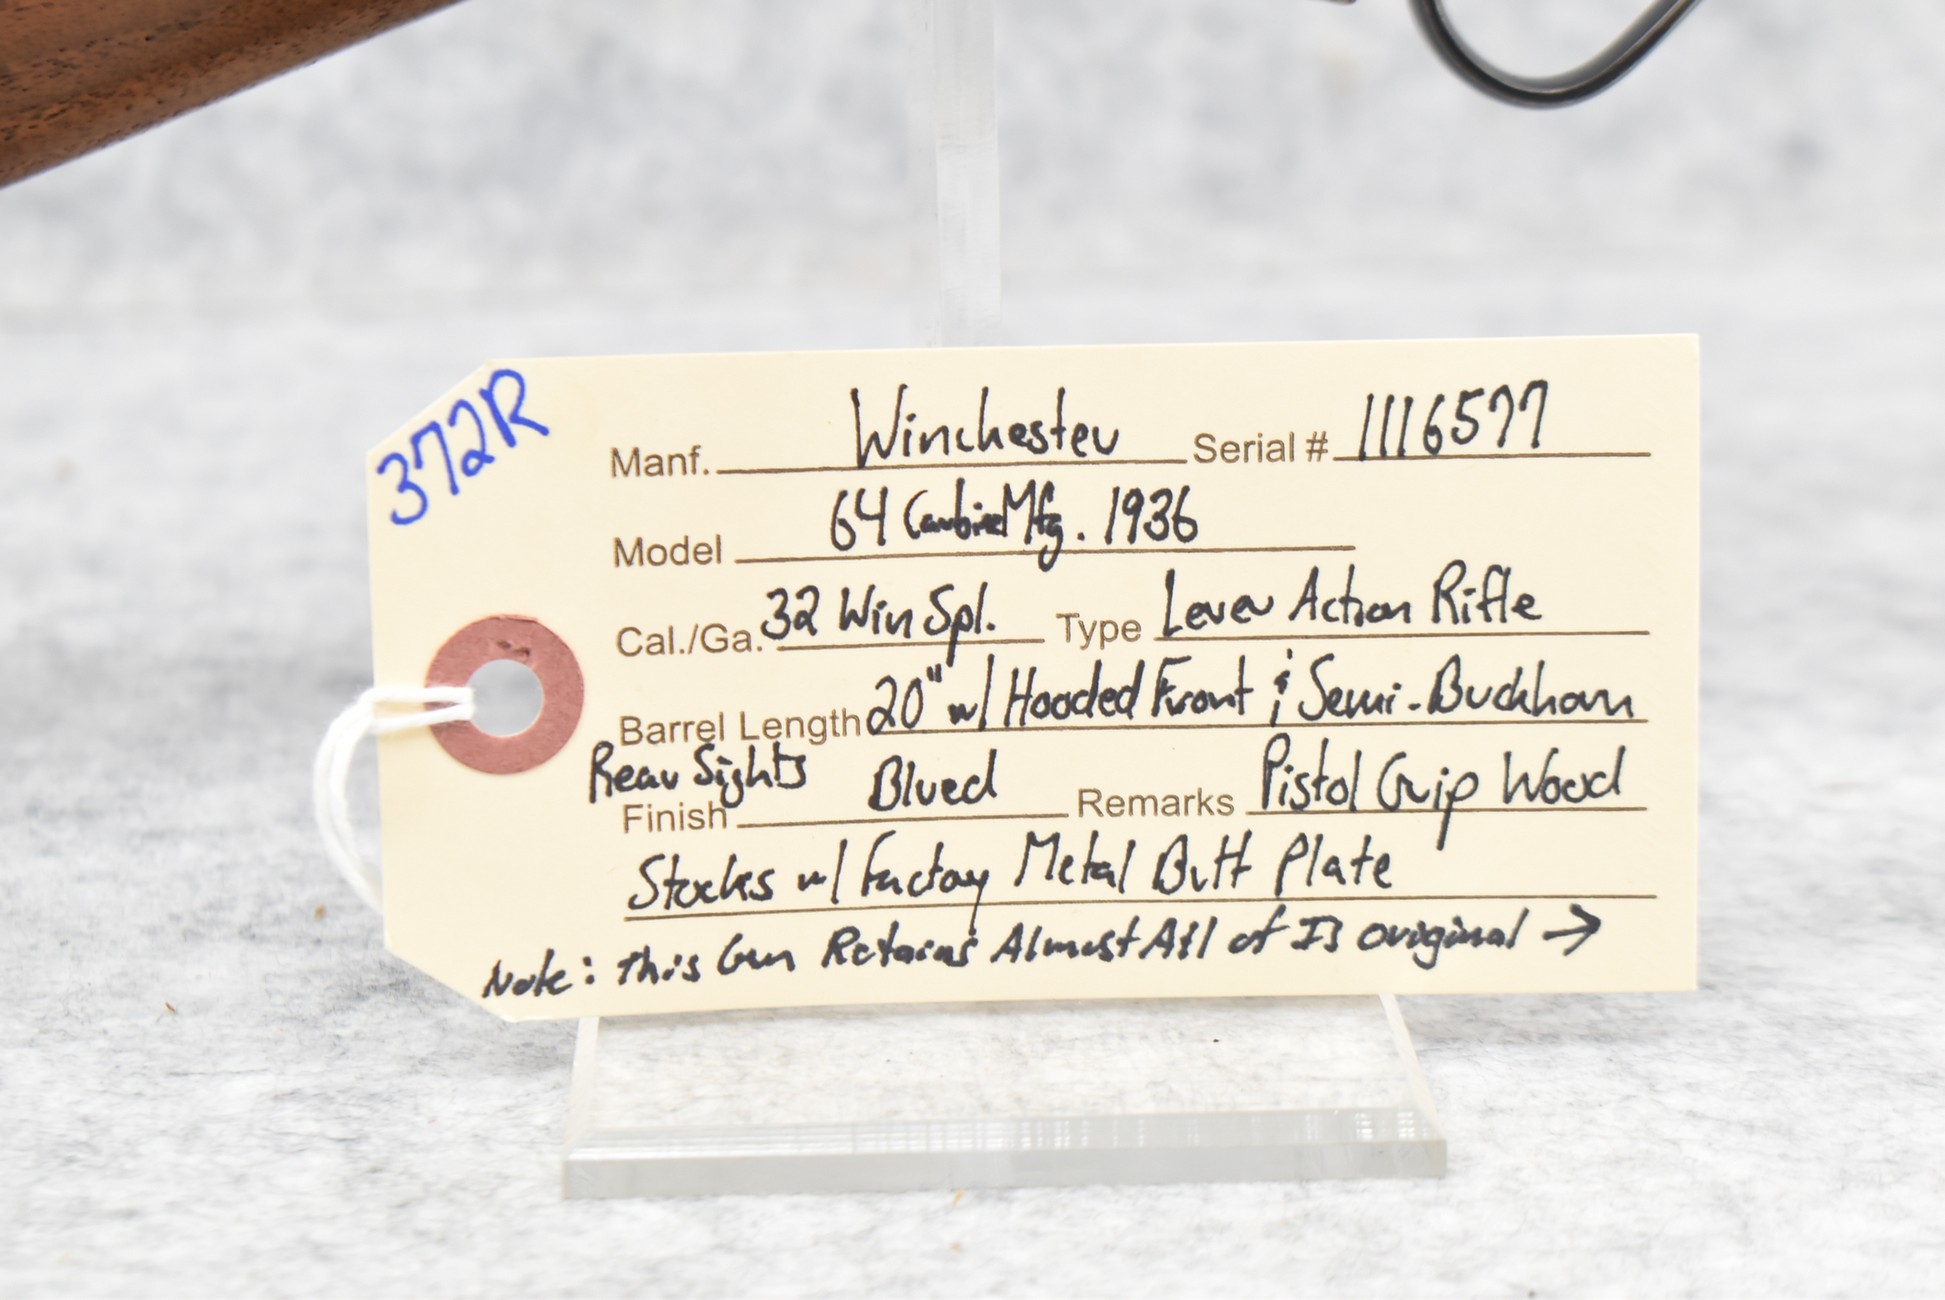 372R
Manf. Winchester Serial # 1116577
Model 64 Carbine Mfg. 1936
Cal./Ga. 32 Win Spl. Type Lever Action Rifle
Barrel Length 20" w/ Hooded Front & Semi-Buckhorn
Rear Sights
Finish Blued Remarks Pistol Grip Wood
Stocks w/ Factory Metal Butt Plate
Note: This Gun Retains Almost All of Its Original →